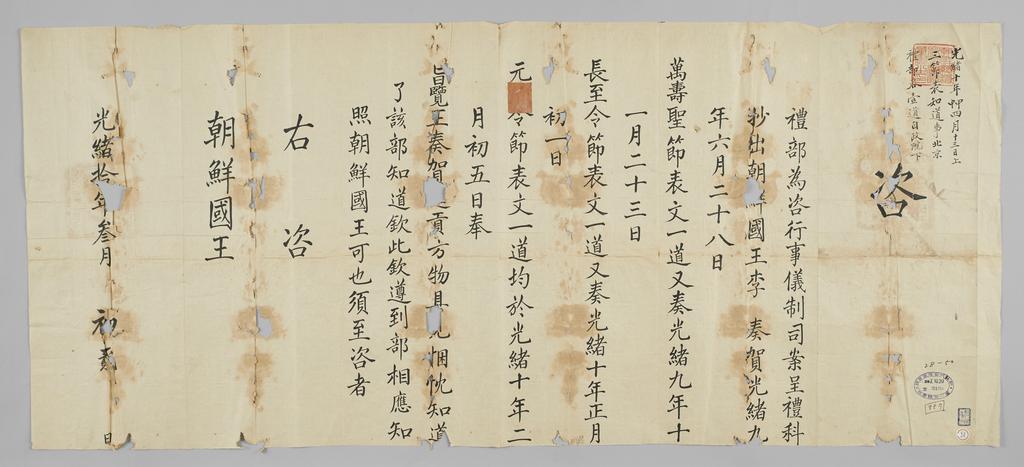 光緒十年 四月十三日上
三節表知道事北京
禮部咨壹道自政院下
咨
禮部為咨行事儀制司案呈禮科
抄出朝鮮國王李 奏賀光緒九
年六月二十八日
萬壽聖節表文一道又奏光緒九年十
一月二十三日
長至令節表文一道又奏光緒十年正月
初一日
元 令節表文一道均於光緒十年二
月初五日奉
旨覽王奏賀 貢方物具見悃忱知道
了該部知道欽此欽遵到部相應知
照朝鮮國王可也須至咨者
右 咨
朝鮮國王
光緒拾年叁月 初貳 日